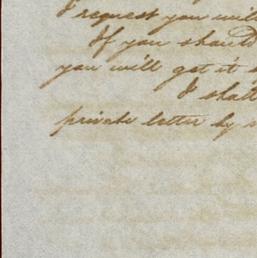 I request you will
If you should
you will get it
I shall
private letter by